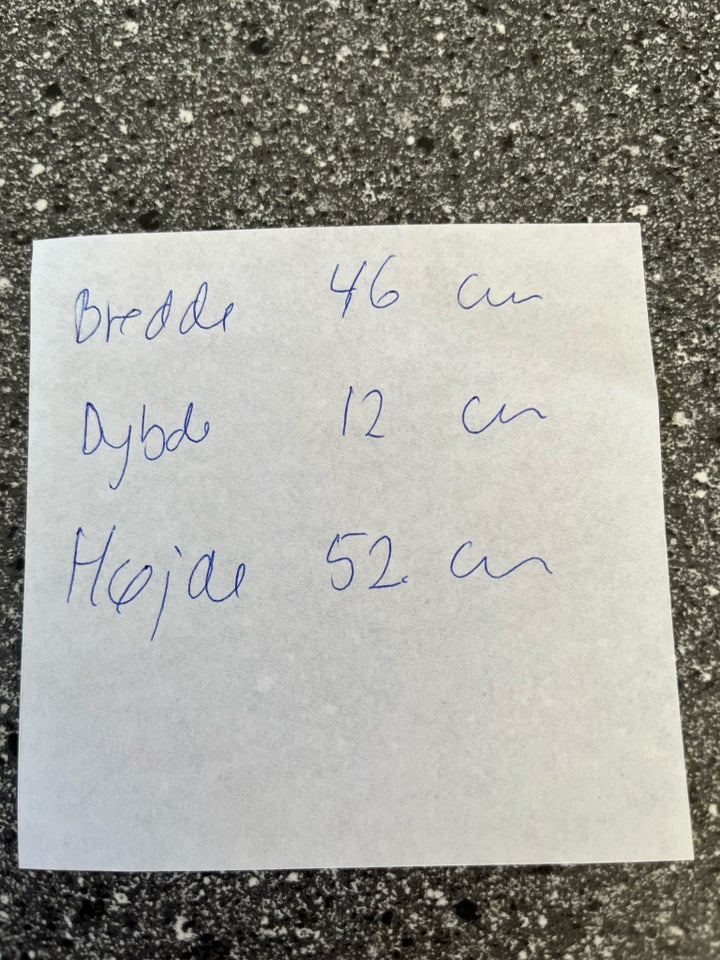 Bredde 46 cm
Dybde 12 cm
Højde 52. cm